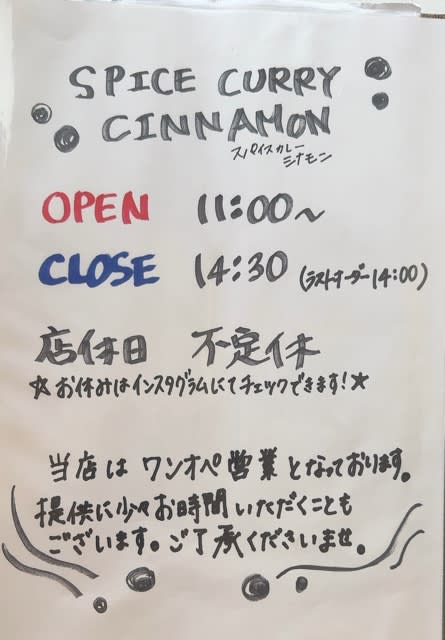 SPICE CURRY
CINNAMON
スパイスカレー
シナモン
OPEN 11:00~
CLOSE 14:30 (ラストオーダー14:00)
店休日 不定休
☆お休みはインスタグラムにてチェックできます!★
当店はワンオペ営業となっております。
提供に少々お時間いただくことも
ございます。ご了承くださいませ。